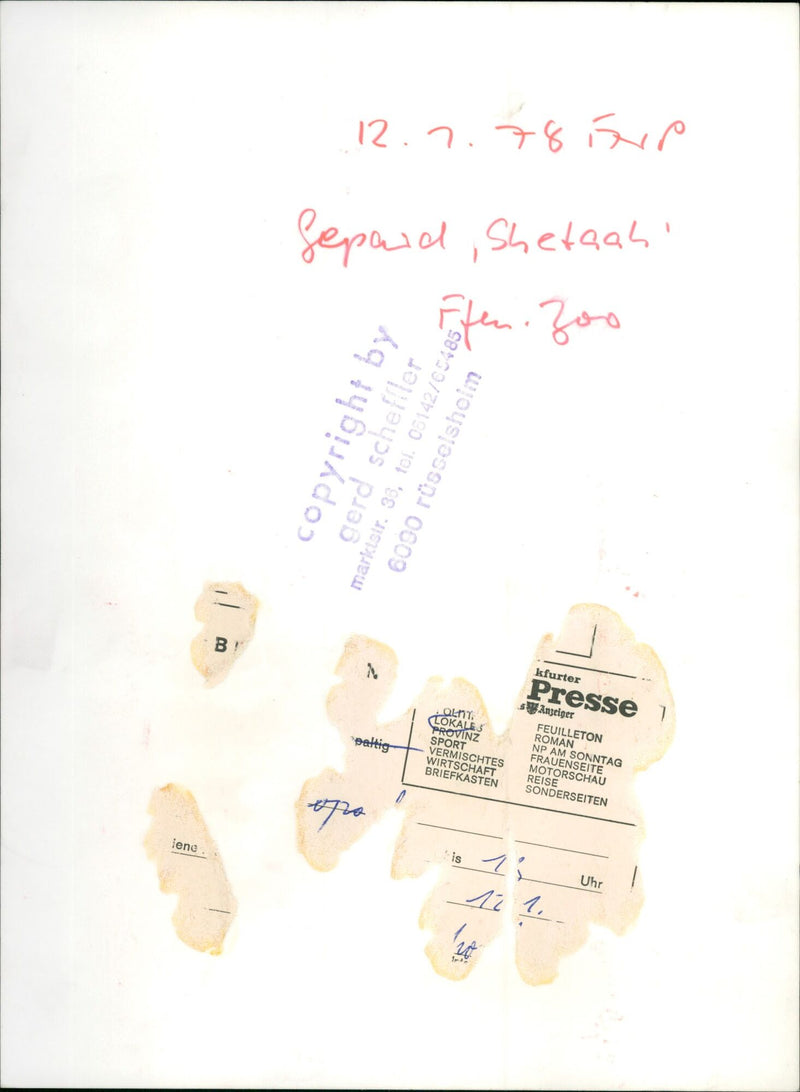 12.1.78 FNP
Gepard 'Shetaah'
Ffm. Zoo
copyright by
gerd scheffler
marktstr. 36, tel. 06142/65485
6090 rüsselsheim
B
N
kfurter
Presse
s Anzeiger
OLITI
LOKALES
PROVINZ
SPORT
VERMISCHTES
WIRTSCHAFT
BRIEFKASTEN
FEUILLETON
ROMAN
NP AM SONNTAG
FRAUENSEITE
MOTORSCHAU
REISE
SONDERSEITEN
paltig
iene
is
Uhr
12.1.